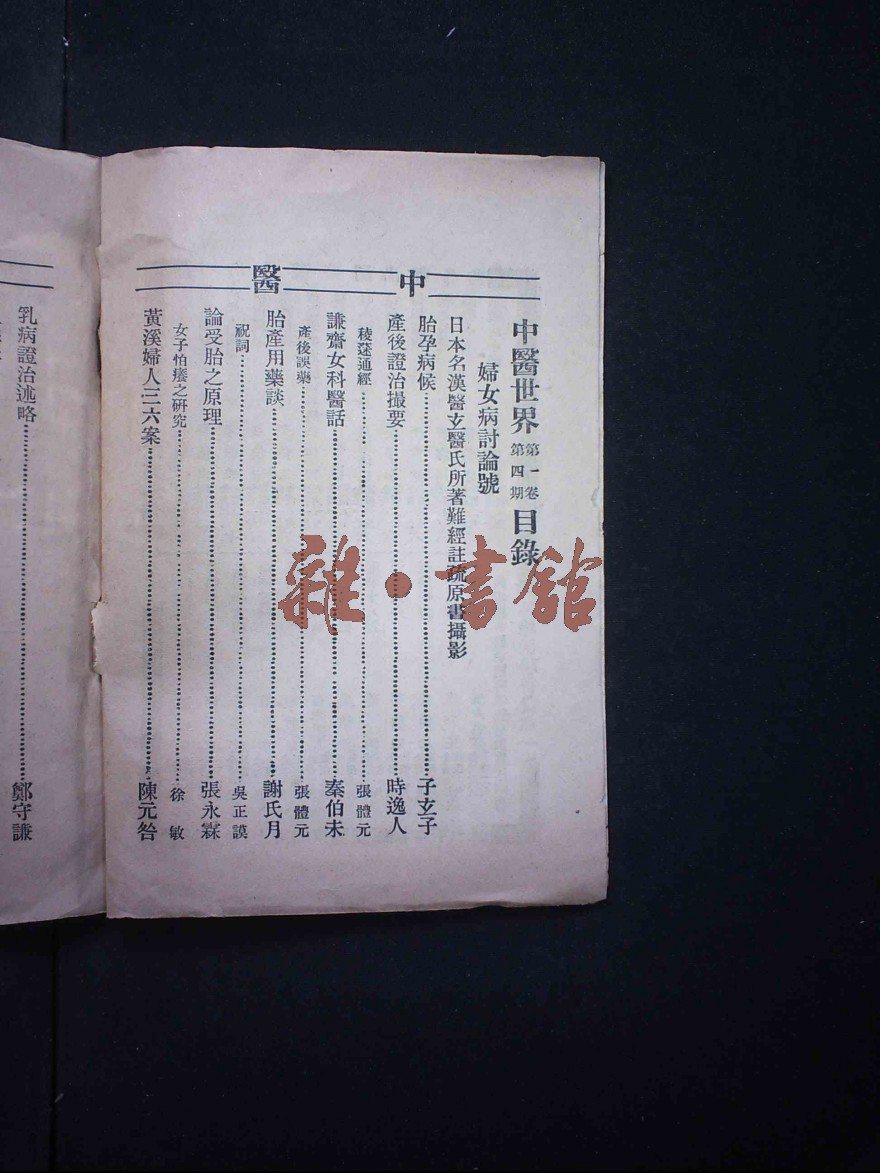 中醫
中醫世界 第一卷 第四期 目錄
婦女病討論號
日本名漢醫玄醫氏所著難經註疏原書攝影
胎孕病候 子玄子
產後證治撮要 時逸人
稜蒾通經 張體元
謙齋女科醫話 秦伯未
產後誤藥 張體元
胎產用藥談 謝氏月
祝詞 吳正謨
論受胎之原理 張永霖
女子怕癢之研究 徐敏
黃溪婦人三六案 陳元咎
乳病證治述略 鄭守謙
雜·書館